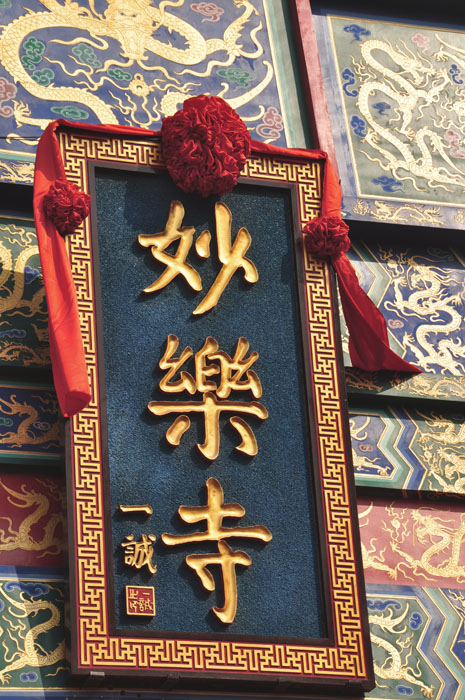 妙樂寺
一誠